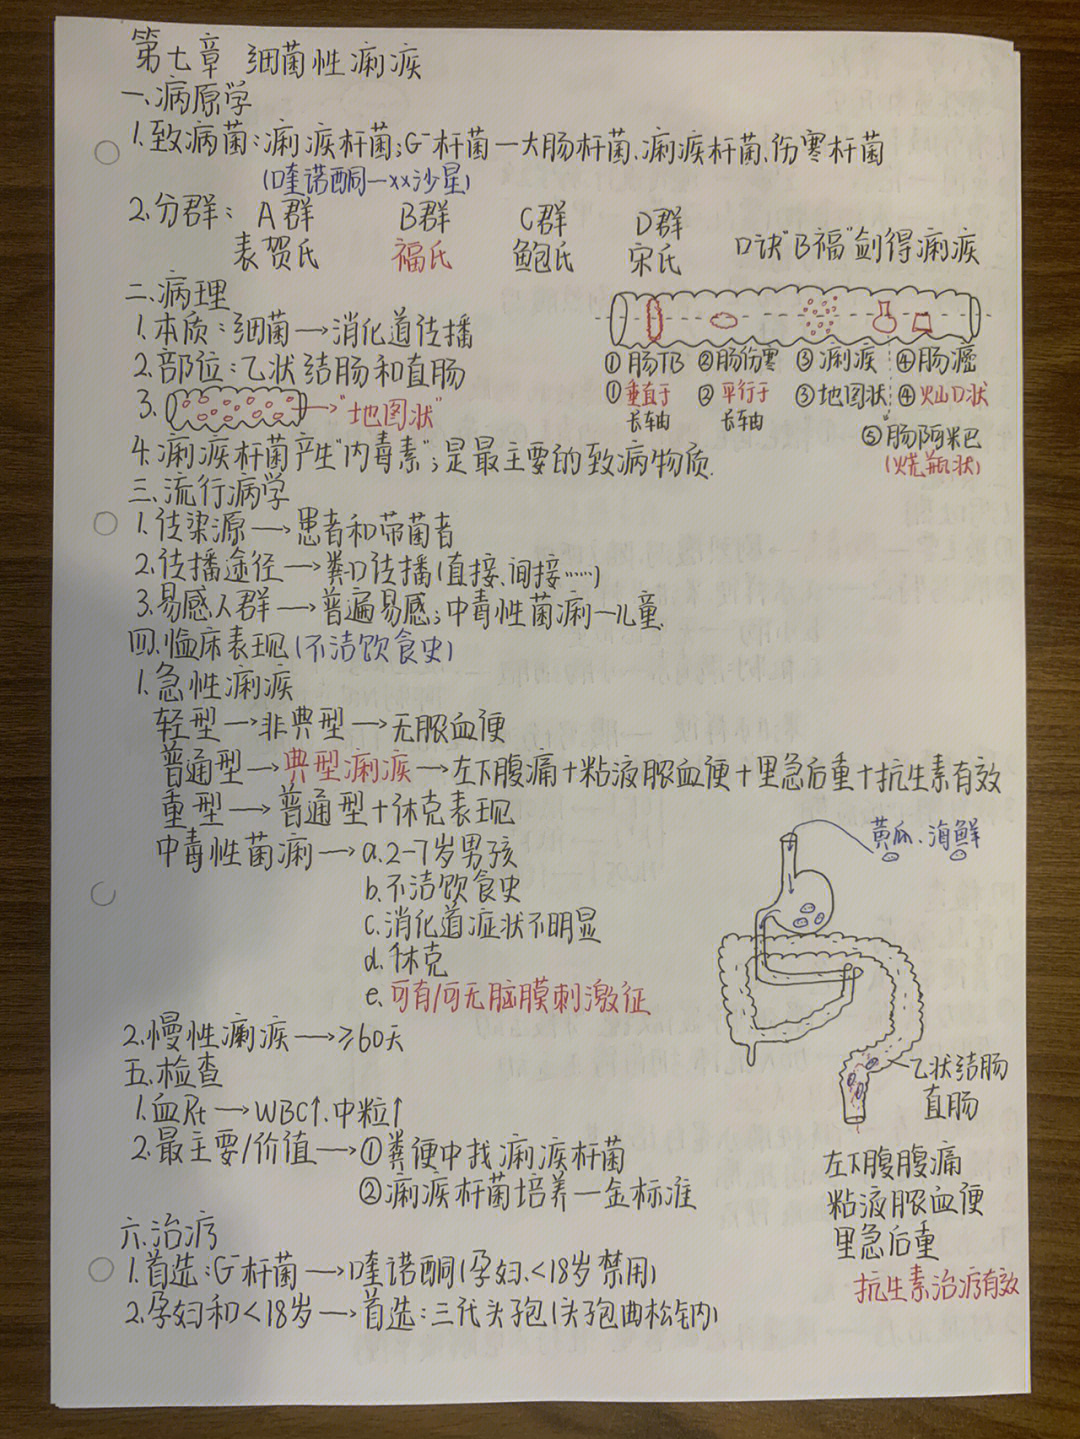 第七章 细菌性痢疾
一.病原学
1.致病菌:痢疾杆菌;G⁻杆菌—大肠杆菌、痢疾杆菌、伤寒杆菌
(喹诺酮—××沙星)
2.分群: A群 B群 C群 D群
志贺氏 福氏 鲍氏 宋氏
口诀"B福"剑得痢疾
二.病理
1.本质:细菌→消化道传播
2.部位:乙状结肠和直肠
3. →"地图状"
4.痢疾杆菌产生"内毒素";是最主要的致病物质.
①肠TB ②肠伤寒 ③痢疾 ④肠癌
①垂直于长轴 ②平行于长轴 ③地图状 ④火山口状
⑤肠阿米巴
(烧瓶状)
三.流行病学
1.传染源→患者和带菌者
2.传播途径→粪口传播(直接、间接……)
3.易感人群→普遍易感;中毒性菌痢—儿童.
四.临床表现(不洁饮食史)
1.急性痢疾
轻型→非典型→无脓血便
普通型→典型痢疾→左下腹痛+粘液脓血便+里急后重+抗生素有效
重型→普通型+休克表现
中毒性菌痢→a.2-7岁男孩
b.不洁饮食史
c.消化道症状不明显
d.休克
e.可有/可无脑膜刺激征
2.慢性痢疾→≥60天
五.检查
1.血Rt→WBC↑.中粒↑
2.最主要/价值→①粪便中找痢疾杆菌
②痢疾杆菌培养—金标准
六.治疗
1.首选:G⁻杆菌→喹诺酮(孕妇、<18岁禁用)
2.孕妇和<18岁→首选:三代头孢(头孢曲松钠)
黄瓜、海鲜
乙状结肠
直肠
左下腹腹痛
粘液脓血便
里急后重
抗生素治疗有效